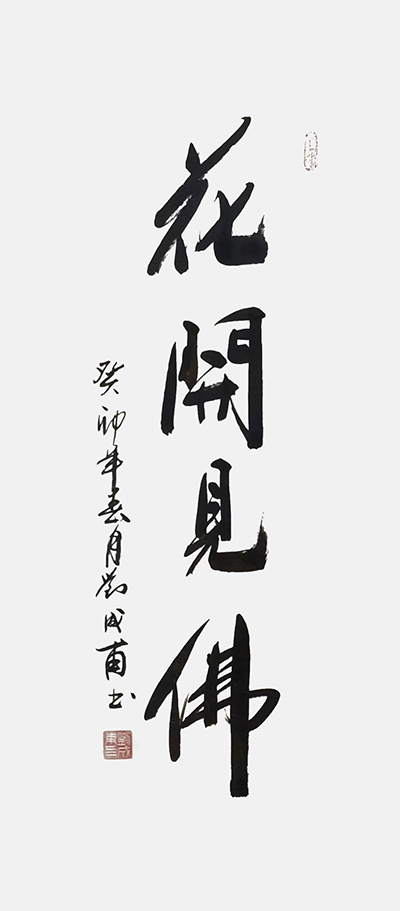 花開見佛
癸卯年春月劉成甫书